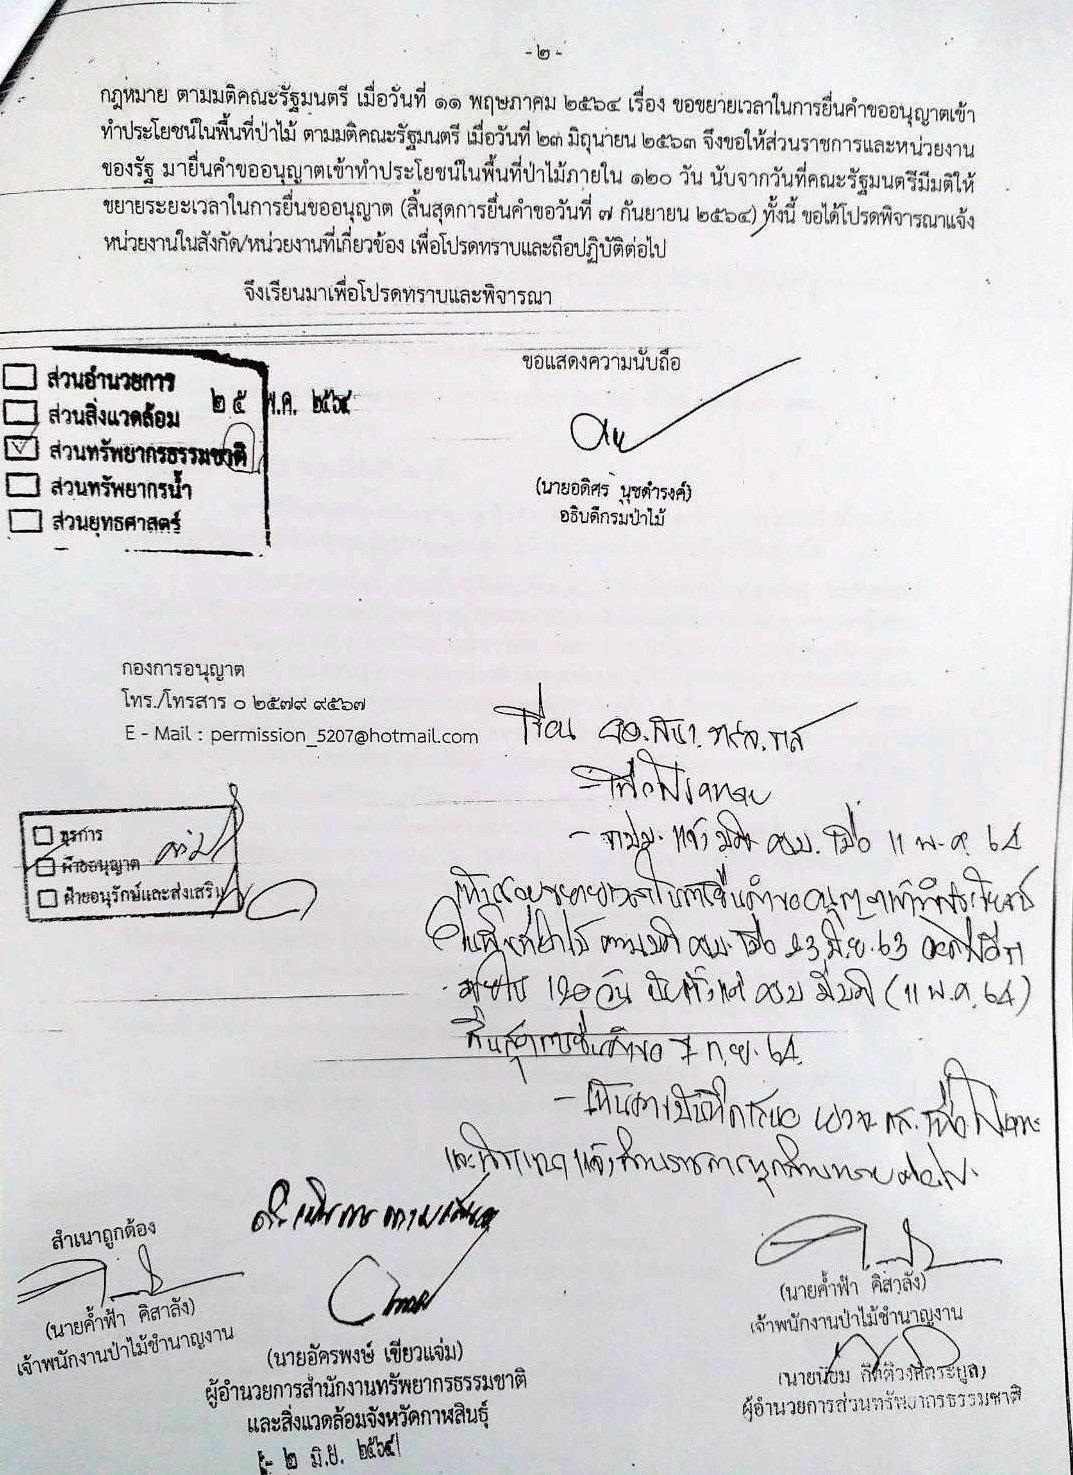 - ๒ -
กฎหมาย ตามมติคณะรัฐมนตรี เมื่อวันที่ ๑๑ พฤษภาคม ๒๕๖๔ เรื่อง ขอขยายเวลาในการยื่นคำขออนุญาตเข้า
ทำประโยชน์ในพื้นที่ป่าไม้ ตามมติคณะรัฐมนตรี เมื่อวันที่ ๒๓ มิถุนายน ๒๕๖๓ จึงขอให้ส่วนราชการและหน่วยงาน
ของรัฐ มายื่นคำขออนุญาตเข้าทำประโยชน์ในพื้นที่ป่าไม้ภายใน ๑๒๐ วัน นับจากวันที่คณะรัฐมนตรีมีมติให้
ขยายระยะเวลาในการยื่นขออนุญาต (สิ้นสุดการยื่นคำขอวันที่ ๗ กันยายน ๒๕๖๔) ทั้งนี้ ขอได้โปรดพิจารณาแจ้ง
หน่วยงานในสังกัด/หน่วยงานที่เกี่ยวข้อง เพื่อโปรดทราบและถือปฏิบัติต่อไป
จึงเรียนมาเพื่อโปรดทราบและพิจารณา
ขอแสดงความนับถือ
(นายอดิศร นุชดำรงค์)
อธิบดีกรมป่าไม้
ส่วนอำนวยการ
ส่วนสิ่งแวดล้อม
ส่วนทรัพยากรธรรมชาติ
ส่วนทรัพยากรน้ำ
ส่วนยุทธศาสตร์
๒๕ พ.ค. ๒๕๖๔
กองการอนุญาต
โทร./โทรสาร ๐ ๒๕๗๙ ๙๕๖๗
E - Mail : permission_5207@hotmail.com
ธุรการ
ฝ่ายอนุญาต
ฝ่ายอนุรักษ์และส่งเสริม
เรียน
- เพื่อโปรดทราบ
แจ้งมติ ครม. เมื่อ 11 พ.ค. 64
ในพื้นที่ป่าไม้ ตามมติ ครม. เมื่อ 23 มิ.ย. 63
ภายใน 120 วัน นับตั้งแต่ ครม มีมติ (11 พ.ค. 64)
สิ้นสุดการยื่นคำขอ 7 ก.ย. 64
ดำเนินการตามเสนอ
สำเนาถูกต้อง
(นายค้ำฟ้า คิสาลัง)
เจ้าพนักงานป่าไม้ชำนาญงาน
(นายอัครพงษ์ เขียวแจ่ม)
ผู้อำนวยการสำนักงานทรัพยากรธรรมชาติ
และสิ่งแวดล้อมจังหวัดกาฬสินธุ์
- ๒ มิ.ย. ๒๕๖๔
(นายค้ำฟ้า คิสาลัง)
เจ้าพนักงานป่าไม้ชำนาญงาน
(นายนิยม กิตติวงศ์ตระกูล)
ผู้อำนวยการส่วนทรัพยากรธรรมชาติ